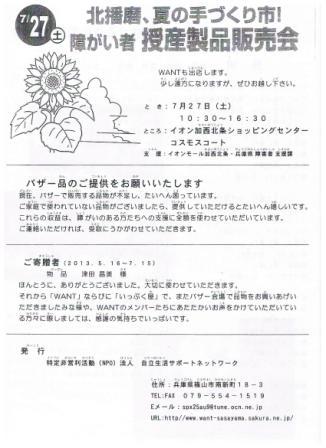 7/27 土
北播磨、夏の手づくり市!
障がい者 授産製品販売会
WANTも出店します。
少し遠方になりますが、ぜひお越し下さい。
とき:7月27日(土)
10:30～16:30
ところ:イオン加西北条ショッピングセンター
コスモスコート
支援:イオンモール加西北条・兵庫県 障害者 支援課
バザー品のご提供をお願いいたします
現在、バザーで販売する品物が不足し、たいへん困っています。
ご家庭で使われていない品物がございましたら、提供していただけるとたいへん嬉しいです。
これらの収益は、障がいのある方たちへの支援に全額を使わせていただいています。
ご連絡いただければ、受取にうかがわせていただきます。
ご寄贈者(2013.5.16～7.15)
物品 津田 昌美 様
ほんとうに、ありがとうございました。大切に使わせていただきます。
それから「WANT」ならびに「いっぷく屋」で、またバザー会場で品物をお買いあげい
ただきましたみな様や、WANTのメンバーたちにあたたかいお声をかけていただいてい
る方々に際しましては、感謝の気持ちでいっぱいです。
発行
特定非営利活動(NPO)法人 自立生活サポートネットワーク
住所:兵庫県篠山市南新町18-3
TEL:FAX 079-554-1519
Eメール:spx25au9@tune.ocn.ne.jp
URL:http://www.want-sasayama.sakura.ne.jp/